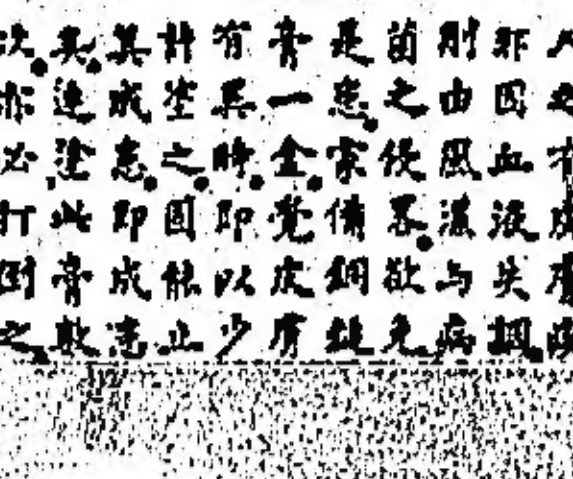 人之有皮膚疾
非因血液失調
則由風濕与病
菌之侵畧。欲免
是恙。家備銅鏈
膏一盒。覺皮膚
有異時。即以少
許塗之。固能止
其成恙。即成恙
矣。連塗此膏數
次。亦必打倒之